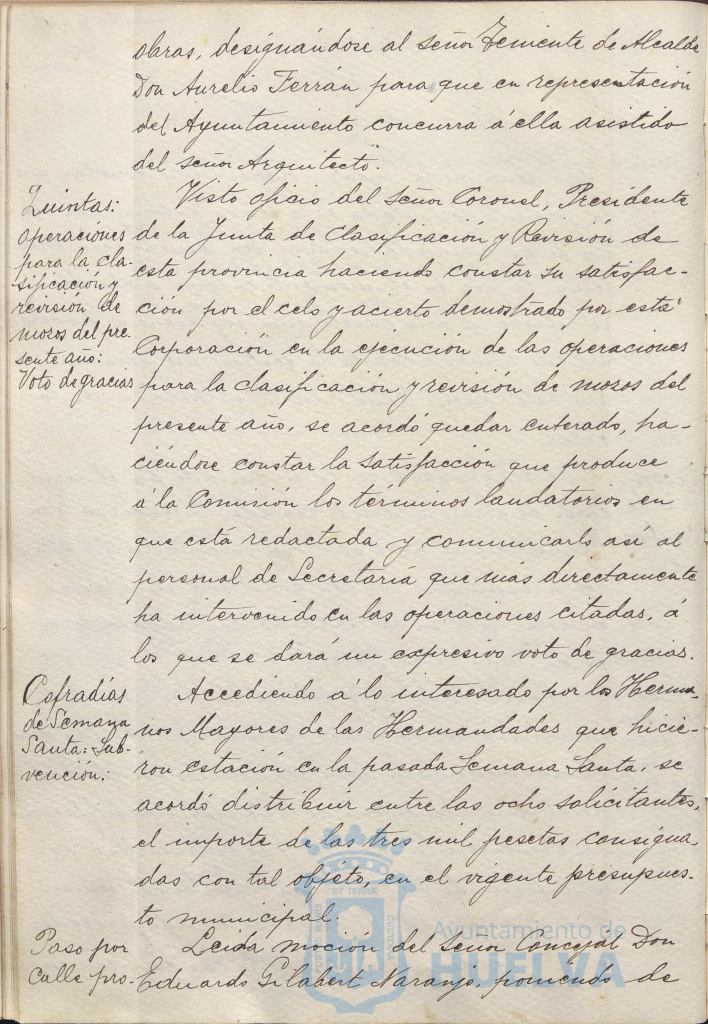 obras, designándose al señor Teniente de Alcalde
Don Aurelio Ferrán para que en representación
del Ayuntamiento concurra á ella asistido
del señor Arquitecto.
Quintas:
operaciones
para la cla-
sificación y
revisión de
mozos del pre-
sente año:
Voto de gracias
Visto oficio del Señor Coronel, Presidente
de la Junta de Clasificación y Revisión de
esta provincia haciendo constar su satisfac-
ción por el celo y acierto demostrado por esta
Corporación en la ejecución de las operaciones
para la clasificación y revisión de mozos del
presente año, se acordó quedar enterado, ha-
ciéndose constar la satisfacción que produce
á la Comisión los términos laudatorios en
que está redactada y comunicarlo así al
personal de Secretaría que más directamente
ha intervenido en las operaciones citadas, á
los que se dará un expresivo voto de gracias.
Cofradías
de Semana
Santa: Sub-
vención.:
Accediendo á lo interesado por los Herma-
nos Mayores de las Hermandades que hicie-
ron estación en la pasada Semana Santa, se
acordó distribuir entre las ocho solicitantes,
el importe de las tres mil pesetas consigna
das con tal objéto, en el vigente presupues-
to municipal.
Paso por
calle pro-
Leida moción del Señor Concejal Don
Eduardo Gilabert Naranjo, poniendo de
Ayuntamiento de
HUELVA